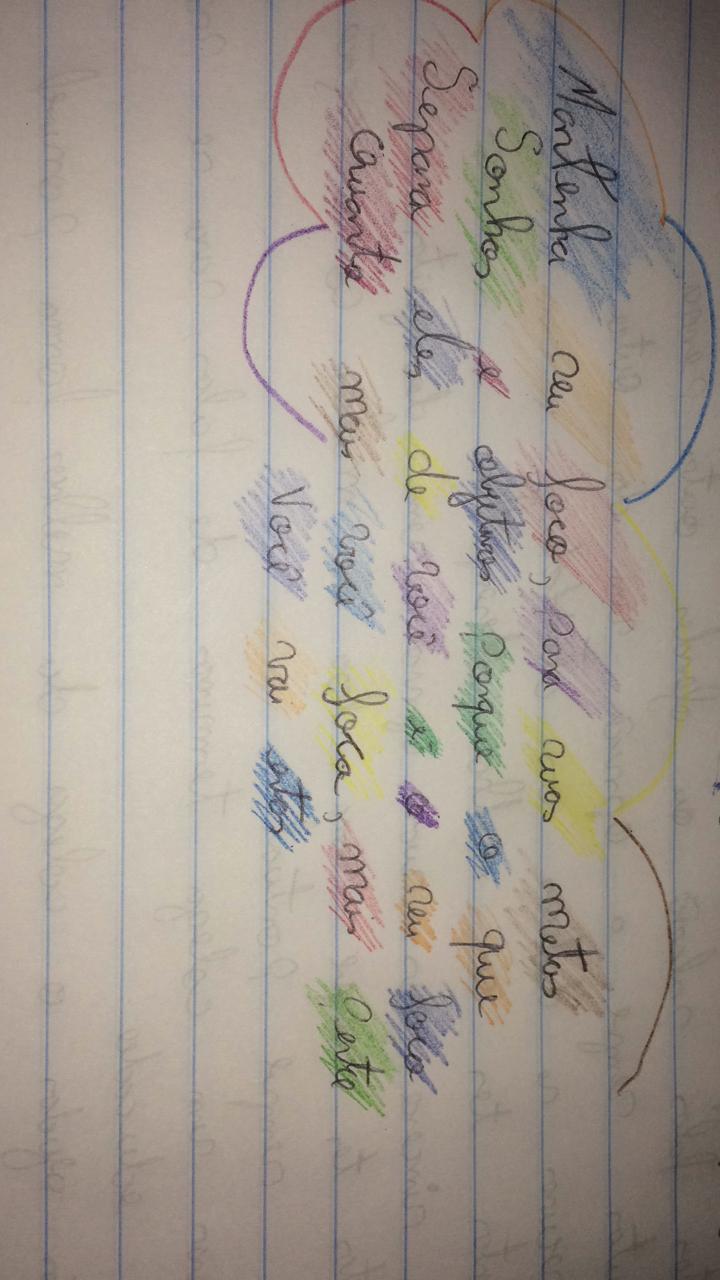 Mantenha seu foco, Para suas metas
Sonhos e objetivos Porque o que
Separa eles de você é o seu foco
Cauanto mais você foca, mais Perto
Você vai estar